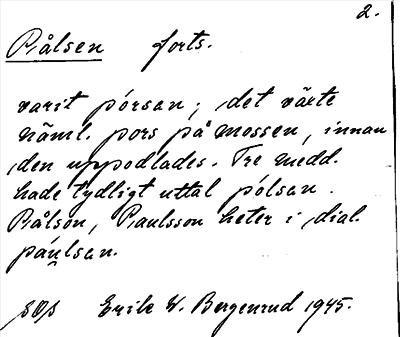 2.
Pålsen forts.
varit pórsan; det växte
näml. pors på mossen, innan
den uppodlades. Tre medd.
hade tydligt uttal pólsan.
Pålson, Paulsson heter i dial.
páulsan.
SOs Erik W. Bergenrud 1945.